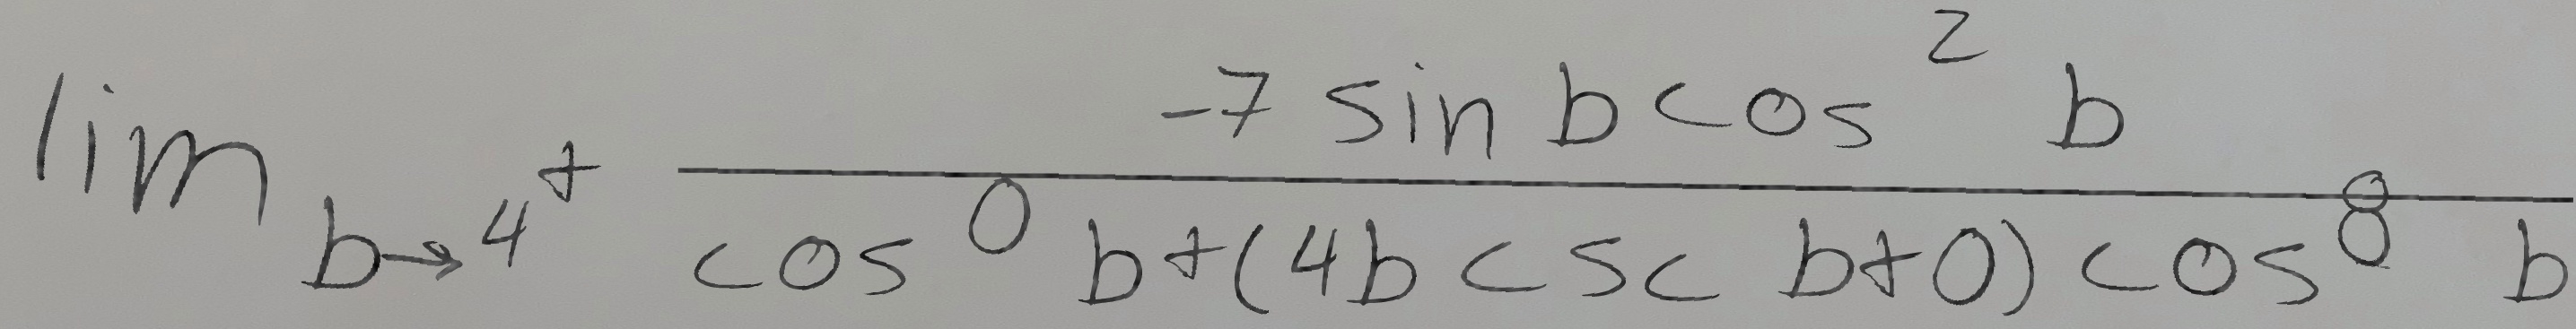 \lim_{b \to 4^+} \frac{-7 \sin b \cos^2 b}{\cos^0 b + (4b \csc b + 0) \cos^8 b}